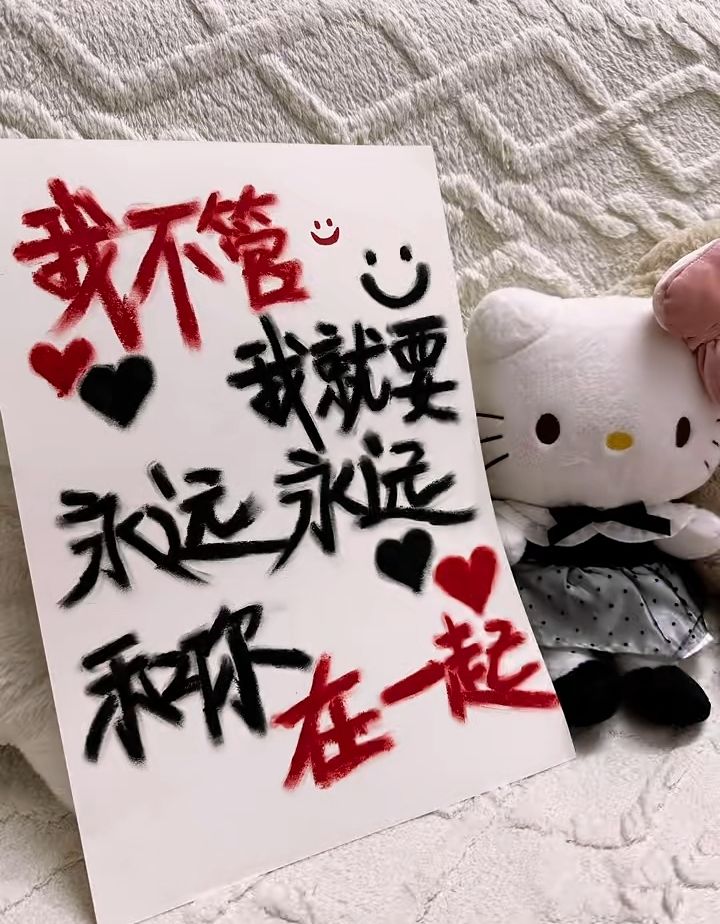 我不管
我就要
永远永远
和你在一起